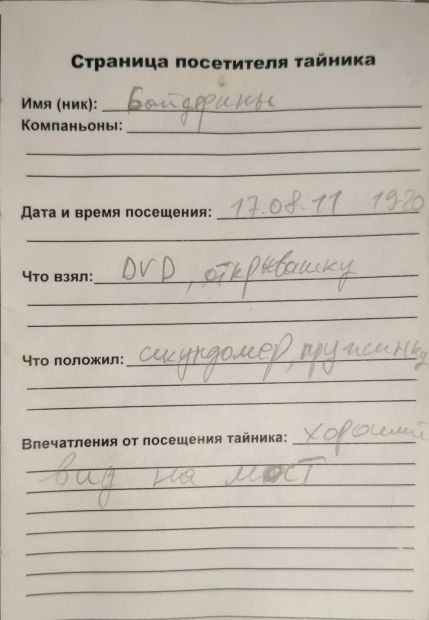 Страница посетителя тайника
Имя (ник): Байдерины
Компаньоны:
Дата и время посещения: 17.08.11 1920
Что взял: DVD, открывашку
Что положил: секундомер, пружинку
Впечатления от посещения тайника: хороший
вид на мост